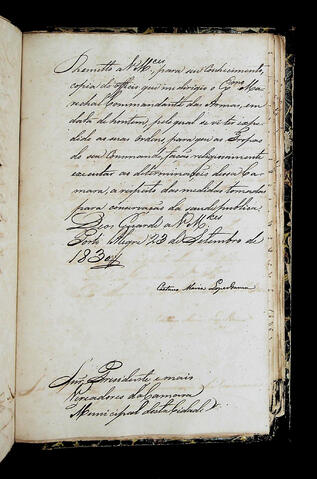 Remetto a V. Mces, para seu conhecimento,
copia do officio que me dirigio o Exmo Ma-
rechal Commandante das Armas, em
data de hontem, pelo qual se vê ter expe-
dido as suas ordens, para que as Tropas
do seu Commando, fação religiosamente
executar as determinações dessa Ca-
mara, a respeito das medidas tomadas
para conservação da saude publica.
Deos Guarde a V. Mces
Porto Alegre 23 de Setembro de
1830
Caetano Maria Lopes Gama
Snrs. Presidente e mais
Vereadores da Camara
Municipal desta Cidade